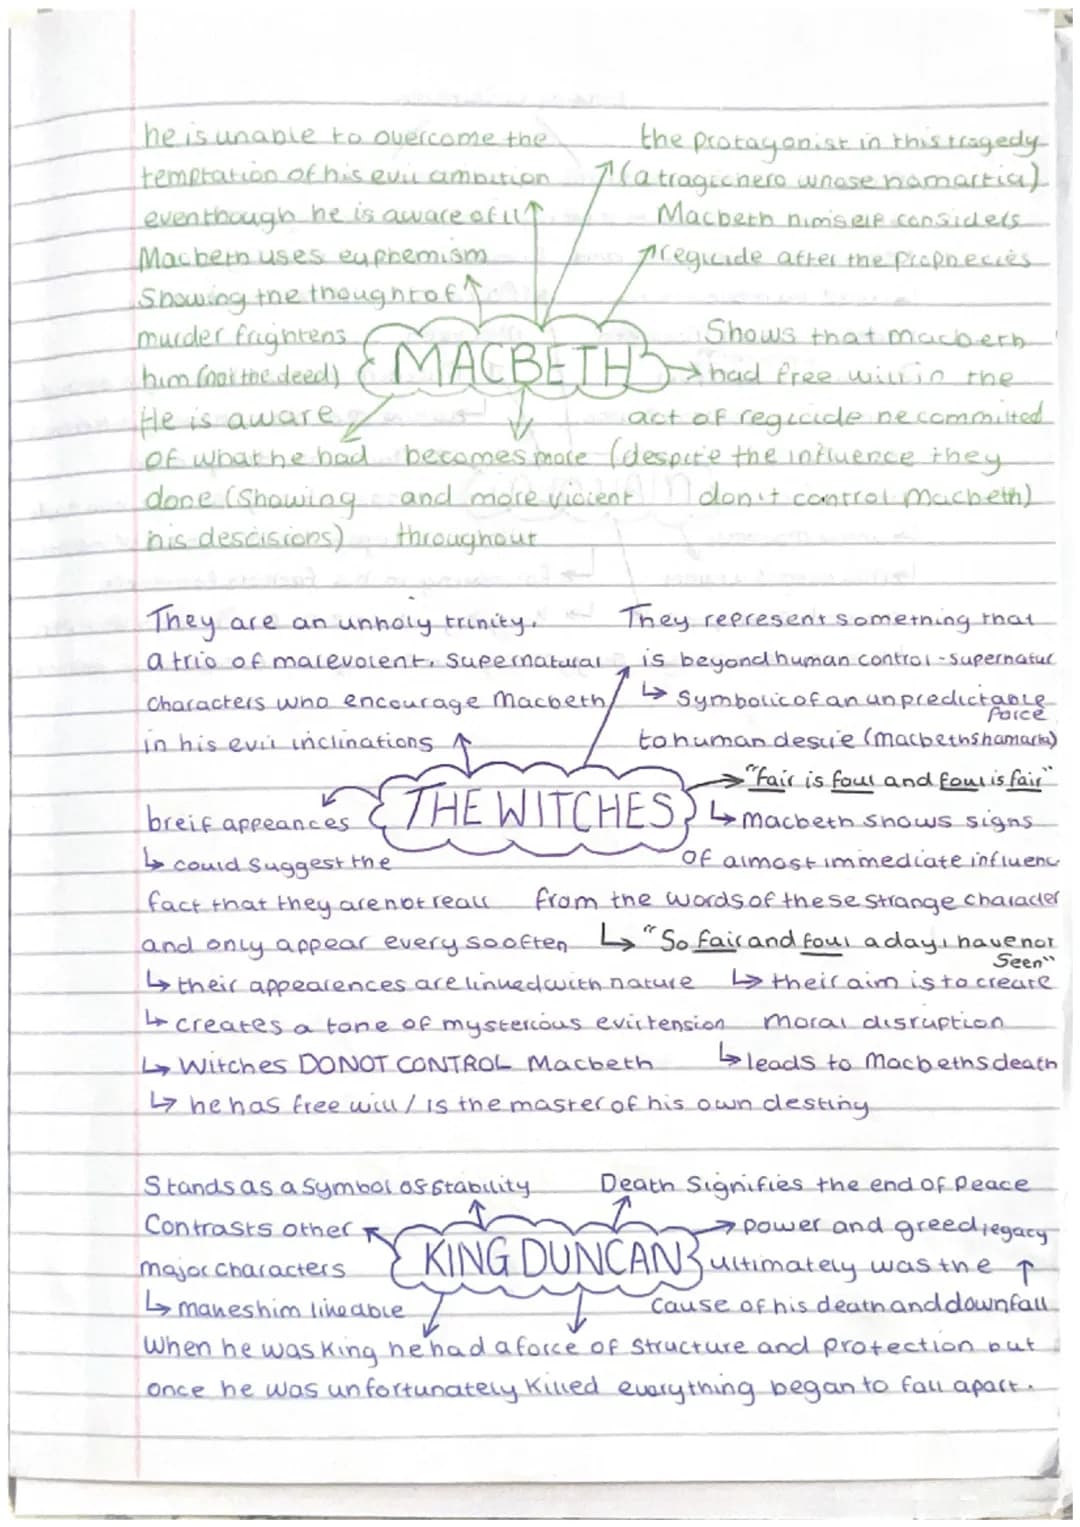 he is unable to overcome the
temptation of his evil ambition
eventhough he is aware of it
Macbeth uses euphemism
Showing the thought of
murder frightens
him (not the deed)
the protagonist in this tragedy
(a tragic hero whose hamartia)
Macbeth himself considers
regicide after the prophecies
MACBETH
Shows that macbeth
had free will in the
act of regicide he committed
(despite the influence they
don't control Macbeth)
He is aware
of what he had
done (Showing
his descisions)
becomes more
and more violent
throughout
They are an unholy trinity.
a trio of malevolent, supernatural
characters who encourage Macbeth
in his evil inclinations
They represent something that
is beyond human control - supernatur
↳ Symbolic of an unpredictable
force
to human desire (macbeths hamartia)
THE WITCHES
"fair is foul and foul is fair"
↳ macbeth shows signs
of almost immediate influenc
from the words of these strange character
↳ "So fair and foul a day i have not
Seen"
↳ their aim is to create
moral disruption
↳ leads to Macbeths death
breif appeances
↳ could suggest the
fact that they are not reall
and only appear every so often
↳ their appearences are linked with nature
↳ creates a tone of mysterious evil tension
↳ Witches DO NOT CONTROL Macbeth
↳ he has free will / is the master of his own destiny
Stands as a Symbol of Stability
Death Signifies the end of Peace
Contrasts other
major characters
↳ makes him likeable
KING DUNCAN
power and greed, legacy
ultimately was the
cause of his death and downfall
When he was King he had a force of Structure and protection but
once he was unfortunately Killed everything began to fall apart.